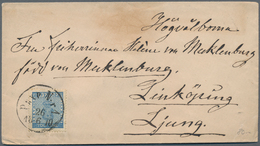 Högvälborna
Fru Friherrinnan Helene von Mecklenburg
född von Mecklenburg.
Linköping
Ljung.